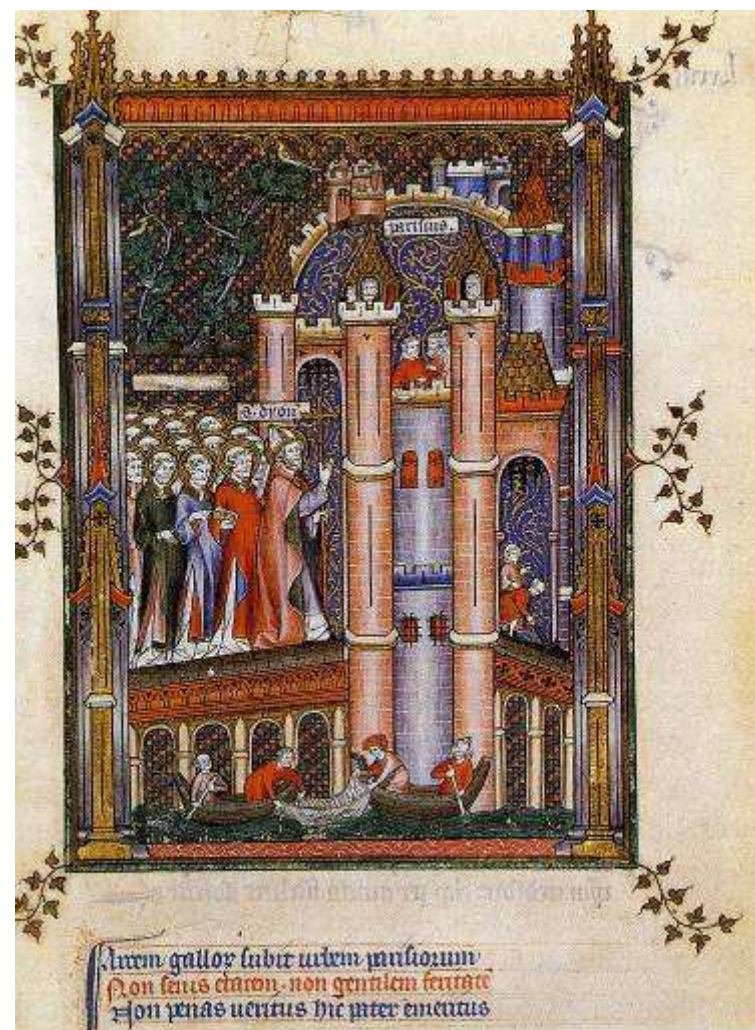 parisius.
s. dyon
Arcem gallor subit urbem parisiorum
Non seuis clateri. non gentilem feritate
Non penas ueritus hic pater emeritus